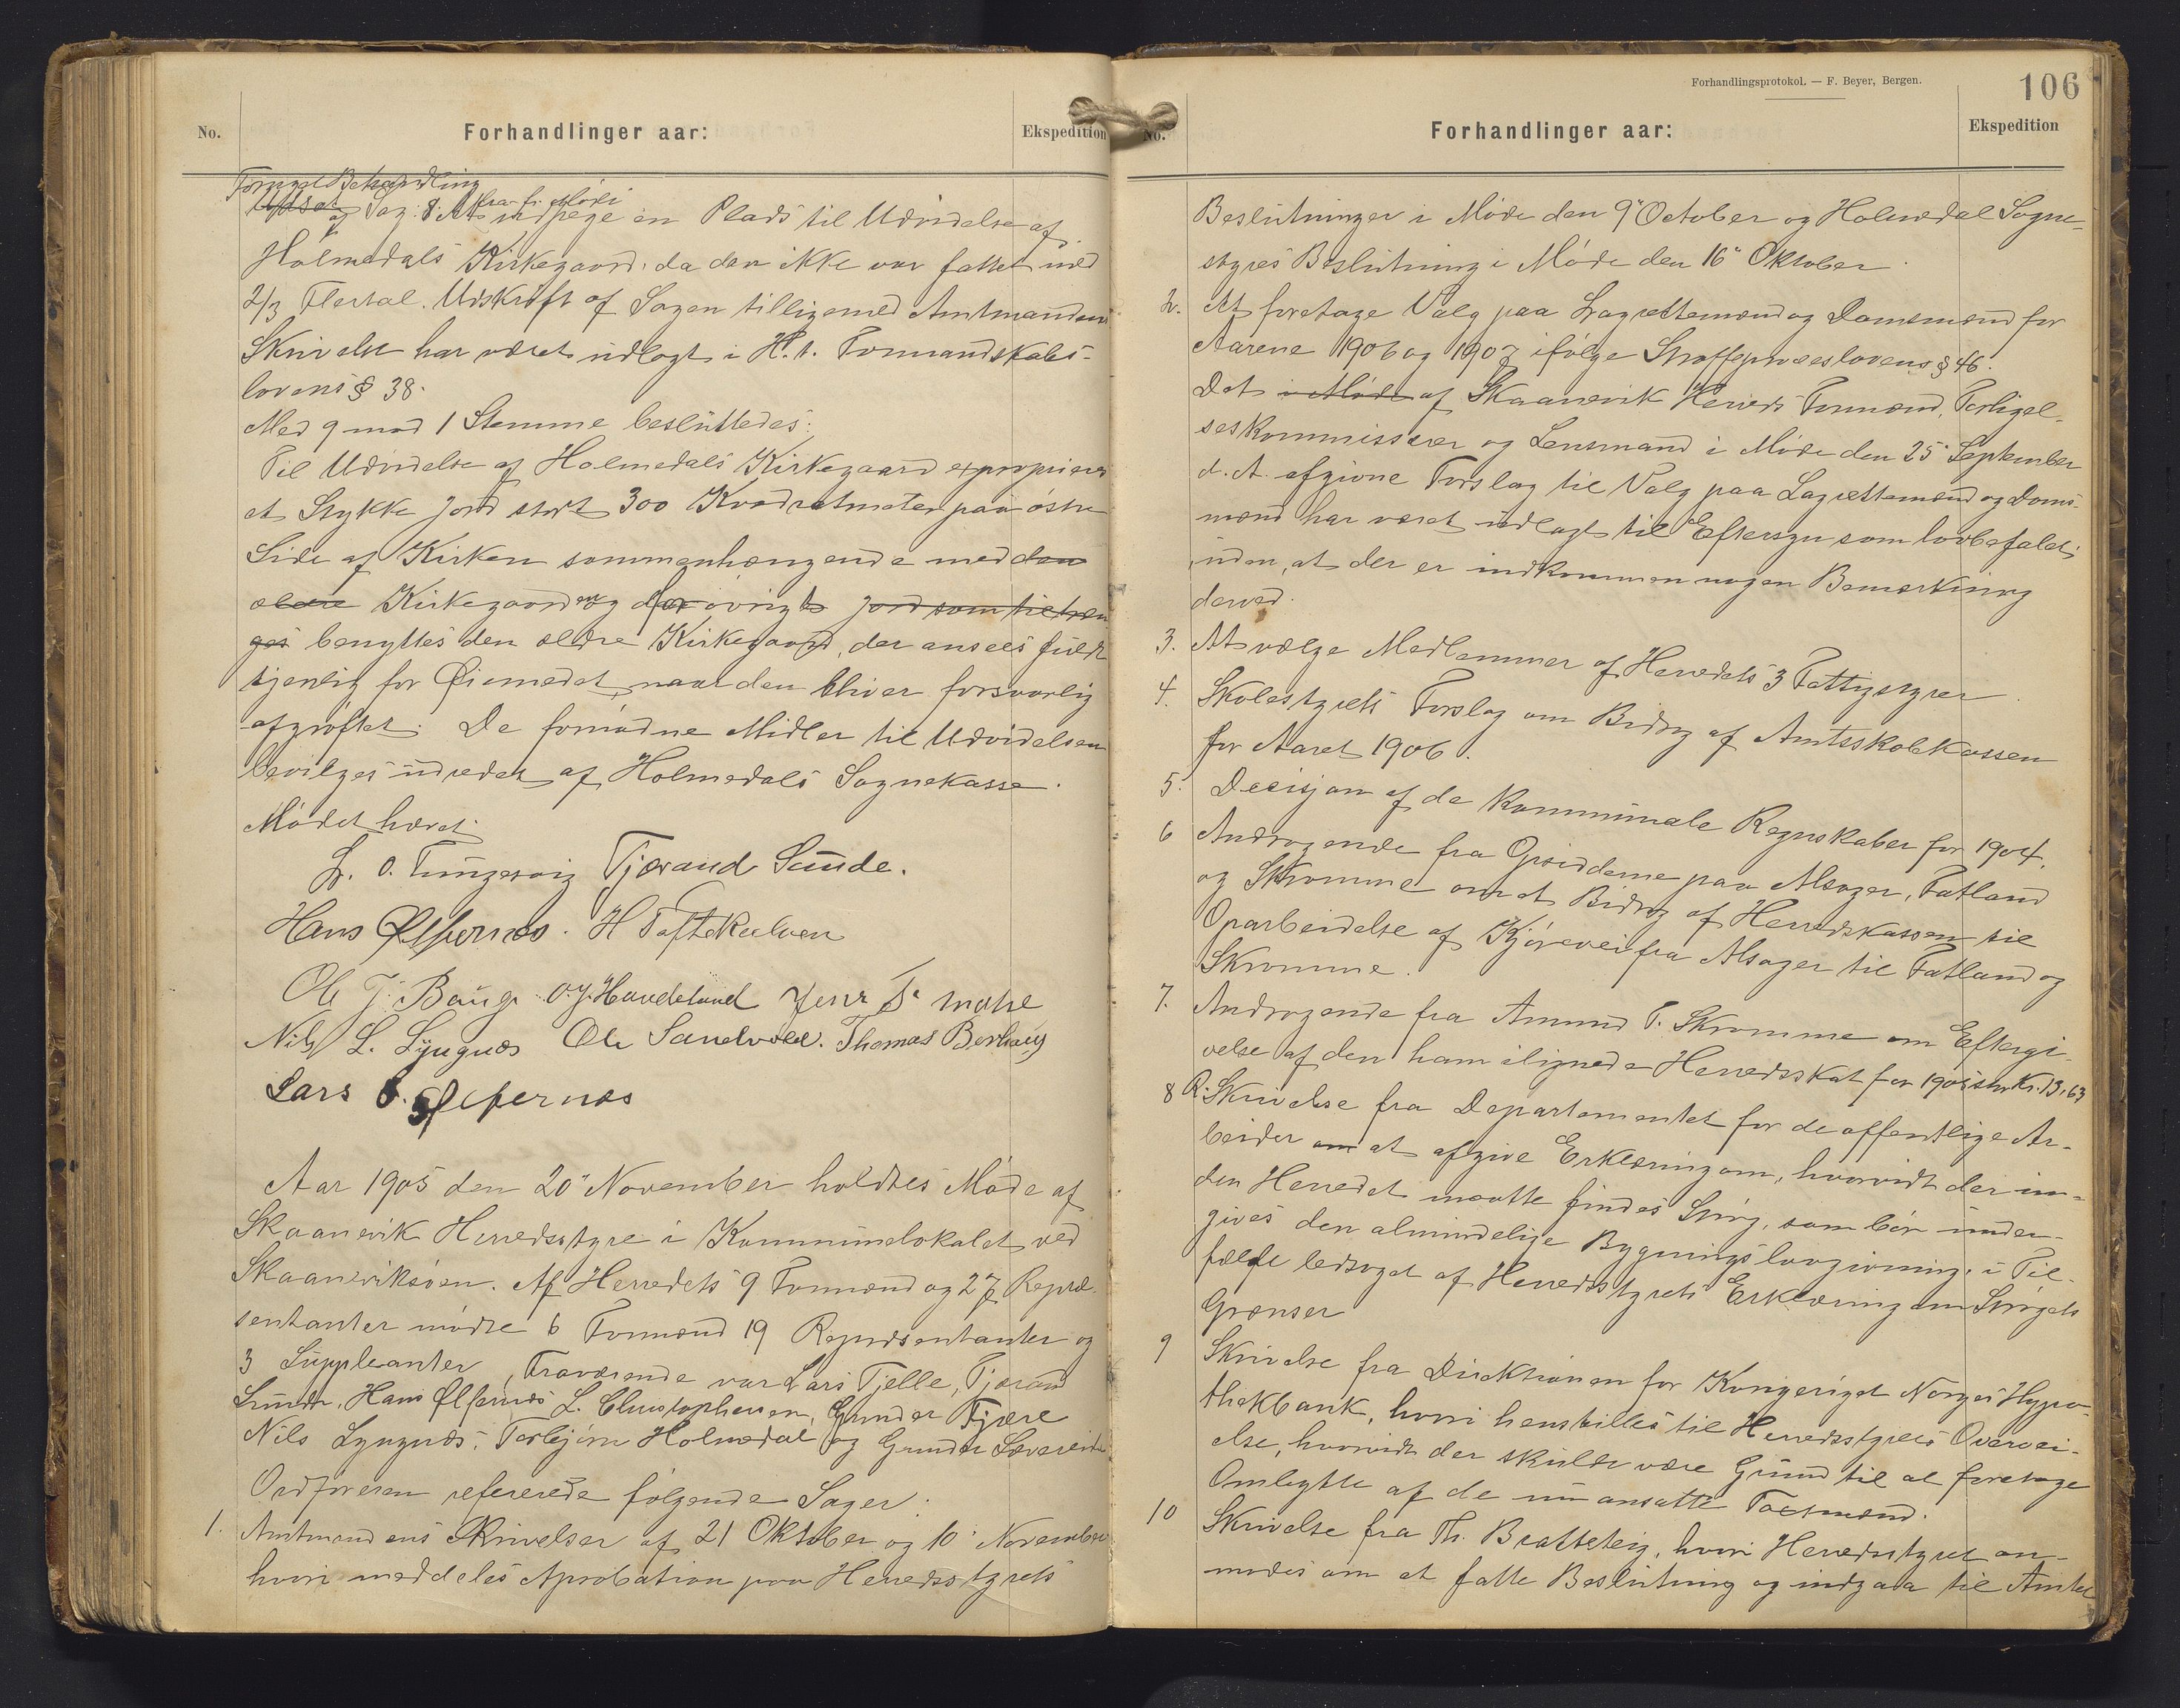 No.
Forhandlinger aar:
Ekspedition
Fornyet Behandling
af Sag: 8. At udpege en Plads til Udvidelse af
Holmedals Kirkegaard, da den ikke var fattet med
2/3 Flertal. Udskrift af Sagen tilligemed Amtmandens
Skrivelse har været udlagt i H. t. Formandskabs-
lovens § 38.
Med 9 mod 1 Stemme besluttedes:
Til Udvidelse af Holmedals Kirkegaard exproprieres
et Stykke Jord stort 300 Kvadratmeter paa østre
Side af Kirken sammenhængende med den
ældre Kirkegaard og forøvrigt Jord som tiltræn
ges benyttes den ældre Kirkegaard, der ansees fuldt
tjenlig for Øiemedet, naar den bliver forsvarlig
afgrøftet. De fornødne Midler til Udvidelsen
bevilges udredet af Holmedals Sognekasse.
Mødet hævet
L. O. Tungesvig Tjerand Sunde.
Hans Ølfernæs. H Toftekalven
Ole J. Bauge O. J. Havdeland Jens T.
Nils L. Lyngnæs Ole Sandvold. Thomas Berhaug
Lars O. Ølfernæs
Aar 1905 den 20 November holdtes Møde af
Skaanevik Herredsstyre i Kommunelokalet ved
Skaaneviksøen. Af Herredets 9 Formænd og 27 Repræ-
sentanter mødte 6 Formænd 19 Repræsentanter og
3 Suppleanter, Fraværende var Lars Tjelle, Tjerand
Sunde, Hans Ølfernæs L. Christophersen, Gunder Fjære
Nils Lyngnæs, Torbjørn Holmedal og Gunder Sævareide
Ordføreren refererede følgende Sager.
1. Amtmandens Skrivelser af 21 Oktober og 10 November
hvori meddeles Aprobation paa Herredsstyrets
Forhandlingsprotokol. — F. Beyer, Bergen.
106
No.
Forhandlinger aar:
Ekspedition
Beslutninger i Møde den 9 October og Holmedal Sogne-
styres Beslutning i Møde den 16 Oktober.
2. At foretage Valg paa Lagrettemænd og Domsmænd for
Aarene 1906 og 1907 ifølge Straffeproceslovens § 46.
Det i Møde af Skaanevik Herreds Formænd, Forligel-
seskommissærer og Lensmand i Møde den 25 September
d. A. afgivne Forslag til Valg paa Lagrettemænd og Doms-
mænd har været udlagt til Eftersyn som lovbefalet,
uden, at der er indkommen nogen Bemærkning
derved.
3. At vælge Medlemmer af Herredets 3 Fattigstyrer
4. Skolestyrets Forslag om Bidrag af Amtsskolekassen
for Aaret 1906.
5. Decisjon af de kommunale Regnskaber for 1904.
6 Andragende fra Opsidderne paa Alsager, Fatland
og Skromme om et Bidrag af Herredskassen til
Oparbeidelse af Kjørevei fra Alsager til Fatland og
Skromme.
7. Andragende fra Amund T. Skromme om Eftergi-
velse af den ham ilignede Herredsskat for 1905 stor Kr. 13,63
8 R. Skrivelse fra Departementet for de offentlige Ar-
beider om at afgive Erklæring om, hvorvidt der in-
den Herredet maatte findes Strøg, som bør under-
gives den almindelige Bygningslovgivning, i Til-
fælde ledsaget af Herredsstyrets Erklæring om Strøgets
Grænser
9 Skrivelse fra Direktionen for Kongeriget Norges Hypo-
thekbank, hvori henstilles til Herredsstyrets Overvei-
else, hvorvidt der skulde være Grund til at foretage
Ombytte af de nu ansatte Taxtmænd.
10 Skrivelse fra Th. Bratteteig, hvori Herredsstyret an-
modes om at fatte Beslutning og indgaa til Amtet